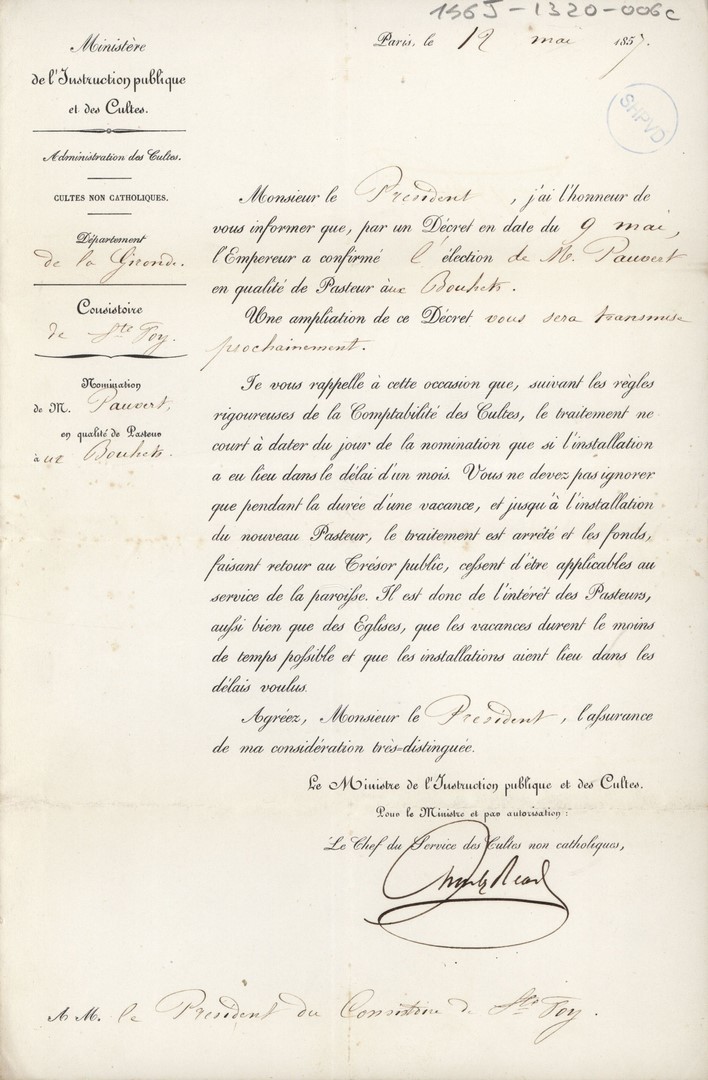 156J-1320-006c
Ministère
de l'Instruction publique
et des Cultes.
Administration des Cultes.
CULTES NON CATHOLIQUES.
Département
de la Gironde.
Consistoire
de Ste Foy.
Nomination
de M. Pauvert,
en qualité de Pasteur
à ux Bouhets.
Paris, le 12 mai 1857.
SHPVD
Monsieur le Président, j'ai l'honneur de
vous informer que, par un Décret en date du 9 mai,
l'Empereur a confirmé l'élection de M. Pauvert
en qualité de Pasteur àux Bouhets.
Une ampliation de ce Décret vous sera transmise
prochainement.
Je vous rappelle à cette occasion que, suivant les règles
rigoureuses de la Comptabilité des Cultes, le traitement ne
court à dater du jour de la nomination que si l'installation
a eu lieu dans le délai d'un mois. Vous ne devez pas ignorer
que pendant la durée d'une vacance, et jusqu'à l'installation
du nouveau Pasteur, le traitement est arrêté et les fonds,
faisant retour au Trésor public, cessent d'être applicables au
service de la paroisse. Il est donc de l'intérêt des Pasteurs,
aussi bien que des Eglises, que les vacances durent le moins
de temps possible et que les installations aient lieu dans les
délais voulus.
Agréez, Monsieur le Président, l'assurance
de ma considération très-distinguée.
Le Ministre de l'Instruction publique et des Cultes.
Pour le Ministre et par autorisation:
Le Chef du Service des Cultes non catholiques,
Charles Read
A M. le Président du Consistoire de Ste Foy.